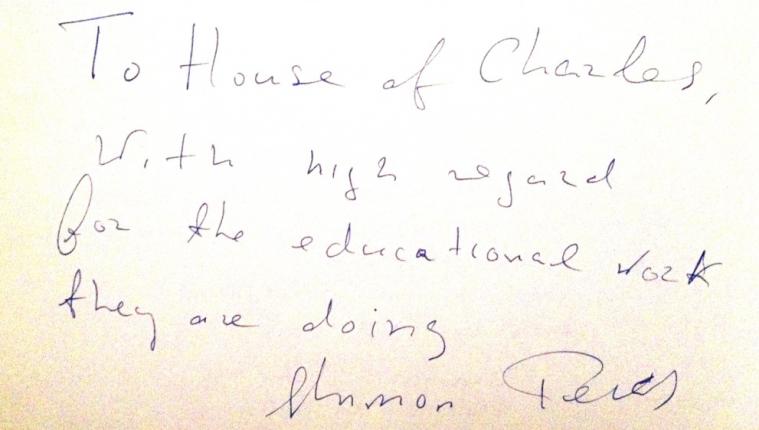 To House of Charles,
With high regard
for the educational work
they are doing
Shimon Peres